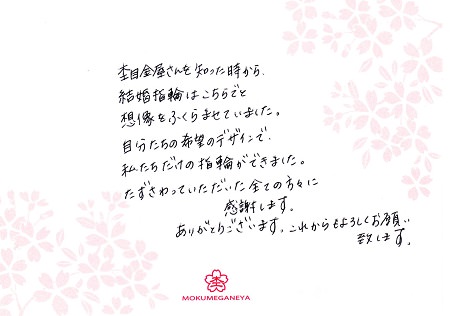 杢目金屋さんを知った時から、
結婚指輪はこちらでと
想像をふくらませていました。
自分たちの希望のデザインで、
私たちだけの指輪ができました。
たずさわっていただいた全ての方々に
感謝します。
ありがとうございます。これからもよろしくお願い
致します。
杢
MOKUMEGANEYA